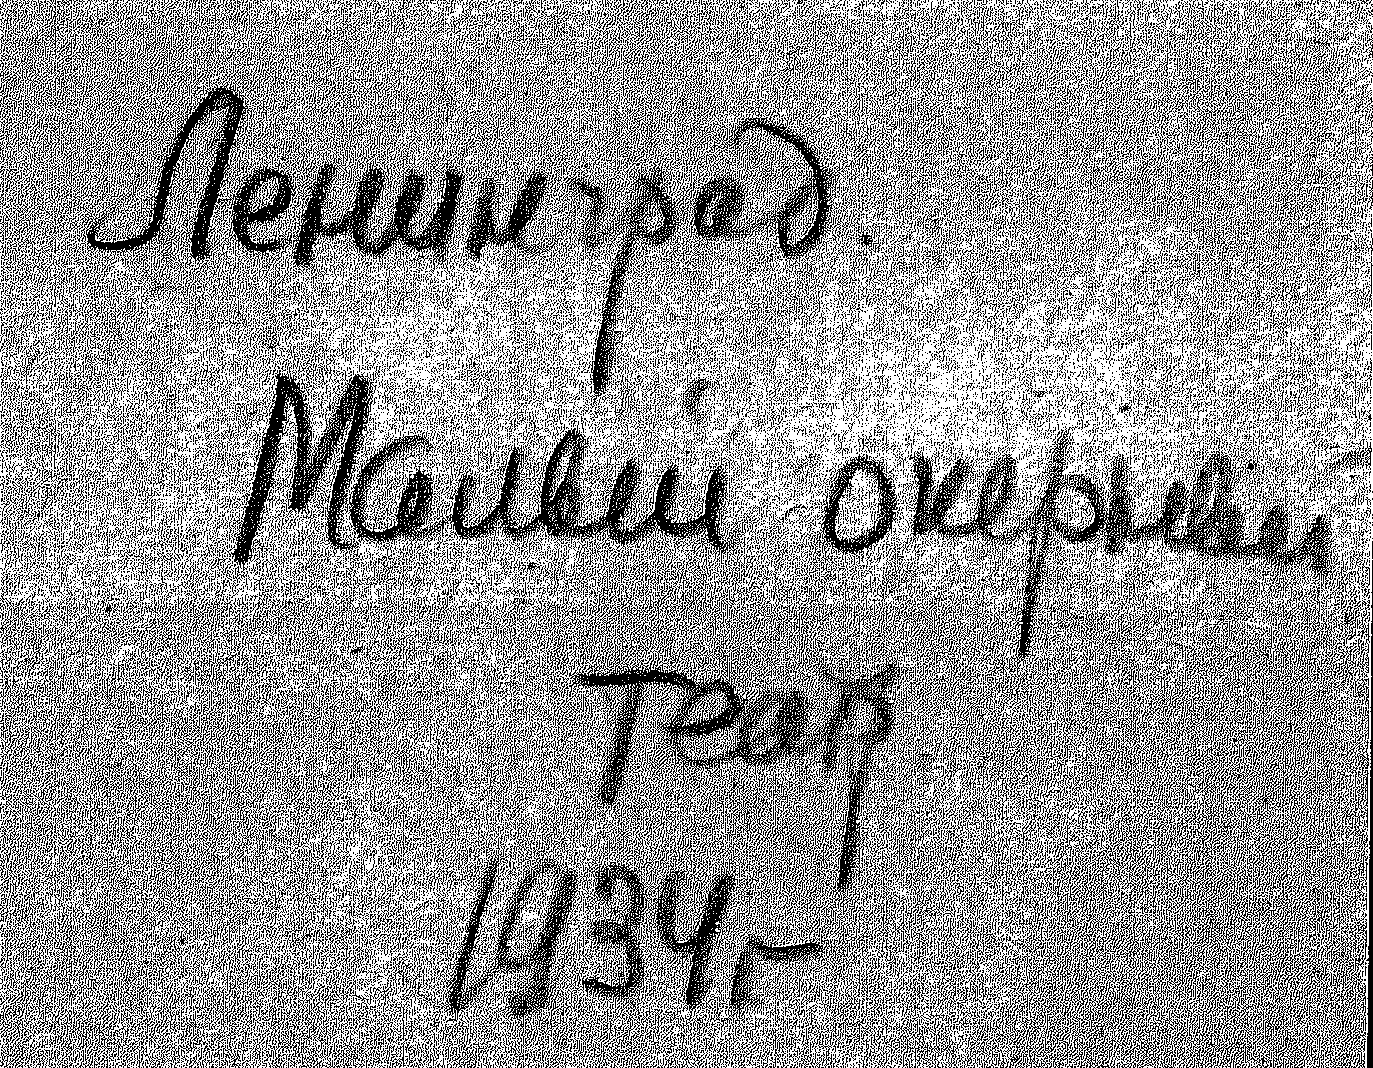 Ленинград.
Малый оперный
Театр
1934 г.